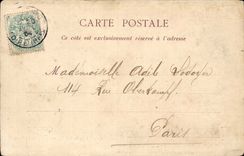 CARTE POSTALE
Ce côté est exclusivement réservé à l'adresse
Mademoiselle
114 Rue Oberkampf
Paris